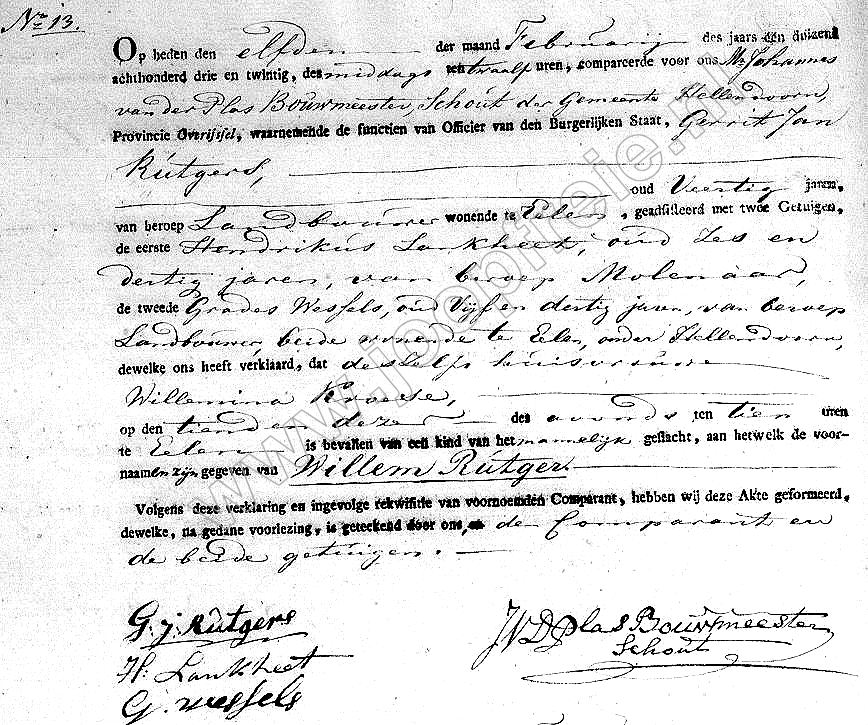 No. 13.
Op heden den elfden der maand Februarij des jaars één duizend
achthonderd drie en twintig, des middags ten twaalf uren, comparcerde voor ons Mr. Johannes
van der Plas Bouwmeester, Schout der Gemeente Hellendoorn,
Provincie Overijssel, waarnemende de functien van Officier van den Burgerlijken Staat, Gerrit Jan
Rútgers,
oud Veertig jaren,
van beroep Landbouwer wonende te Eelen, geadsisteerd met twee Getuigen,
de eerste Hendrikús Lankheet, oúd Zes en
dertig jaren, van beroep Molenaar,
de tweede Grades Wessels, oúd Vijf en dertig jaren, van beroep
Landbouwer, beide wonende te Eelen, onder Hellendoorn,
dewelke ons heeft verklaard, dat deszelfs húisvroúwe
Willemina Kroese,
op den tienden dezer des avonds ten tien uren
te Eelen is bevallen van een kind van het mannelijk geslacht, aan hetwelk de voor-
naamen zijn gegeven van Willem Rútger.
Volgens deze verklaring en ingevolge rekwisitie van voornoemden Comparant, hebben wij deze Akte geformeerd,
dewelke, na gedane voorlezing, is geteekend door ons, en de Comparant en
de beide getuigen.
G: j: Rútgers
H: Lankheet
G. Wessels
JVDPlas Bouwmeester
Schout
www.joopfreie.nl